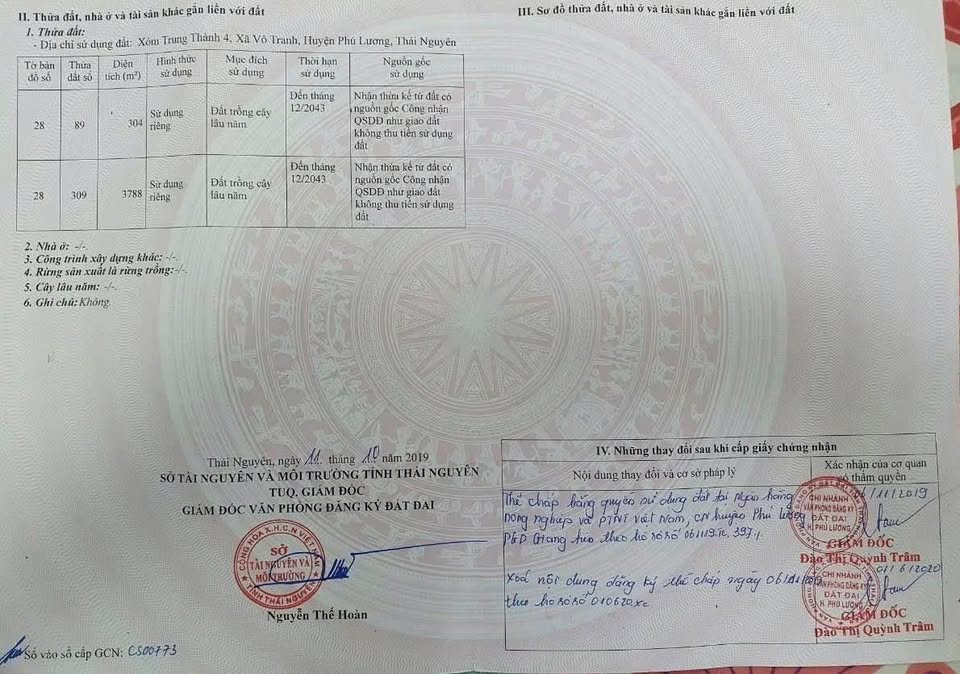 II. Thửa đất, nhà ở và tài sản khác gắn liền với đất
1. Thửa đất:
- Địa chỉ sử dụng đất: Xóm Trung Thành 4, Xã Vô Tranh, Huyện Phú Lương, Thái Nguyên
Tờ bản đồ số Thửa đất số Diện tích (m²) Hình thức sử dụng Mục đích sử dụng Thời hạn sử dụng Nguồn gốc sử dụng
28 89 304 Sử dụng riêng Đất trồng cây lâu năm Đến tháng 12/2043 Nhận thừa kế từ đất có nguồn gốc Công nhận QSDĐ như giao đất không thu tiền sử dụng đất
28 309 3788 Sử dụng riêng Đất trồng cây lâu năm Đến tháng 12/2043 Nhận thừa kế từ đất có nguồn gốc Công nhận QSDĐ như giao đất không thu tiền sử dụng đất
2. Nhà ở: -/-.
3. Công trình xây dựng khác: -/-.
4. Rừng sản xuất là rừng trồng: -/-.
5. Cây lâu năm: -/-.
6. Ghi chú: Không.
Thái Nguyên, ngày 11 tháng 10 năm 2019
SỞ TÀI NGUYÊN VÀ MÔI TRƯỜNG TỈNH THÁI NGUYÊN
TUQ. GIÁM ĐỐC
GIÁM ĐỐC VĂN PHÒNG ĐĂNG KÝ ĐẤT ĐAI
CỘNG HÒA X.H.C.N VIỆT NAM
SỞ
TÀI NGUYÊN VÀ
MÔI TRƯỜNG
TỈNH THÁI NGUYÊN
Nguyễn Thế Hoàn
Số vào sổ cấp GCN: CS00773
III. Sơ đồ thửa đất, nhà ở và tài sản khác gắn liền với đất
IV. Những thay đổi sau khi cấp giấy chứng nhận
Nội dung thay đổi và cơ sở pháp lý
Xác nhận của cơ quan
có thẩm quyền
Thế chấp bằng quyền sử dụng đất tại Ngân hàng
nông nghiệp và PTNT Việt Nam, CN huyện Phú Lương
PGD Giang theo theo hồ sơ số 061119.TC.397.
06/11/2019
CHI NHÁNH
VĂN PHÒNG ĐĂNG KÝ
ĐẤT ĐAI
H. PHÚ LƯƠNG
GIÁM ĐỐC
Đào Thị Quỳnh Trâm
Xoá nội dung đăng ký thế chấp ngày 06/11/2019
theo hồ sơ số 010620.XC
01/6/2020
CHI NHÁNH
VĂN PHÒNG ĐĂNG KÝ
ĐẤT ĐAI
H. PHÚ LƯƠNG
GIÁM ĐỐC
Đào Thị Quỳnh Trâm